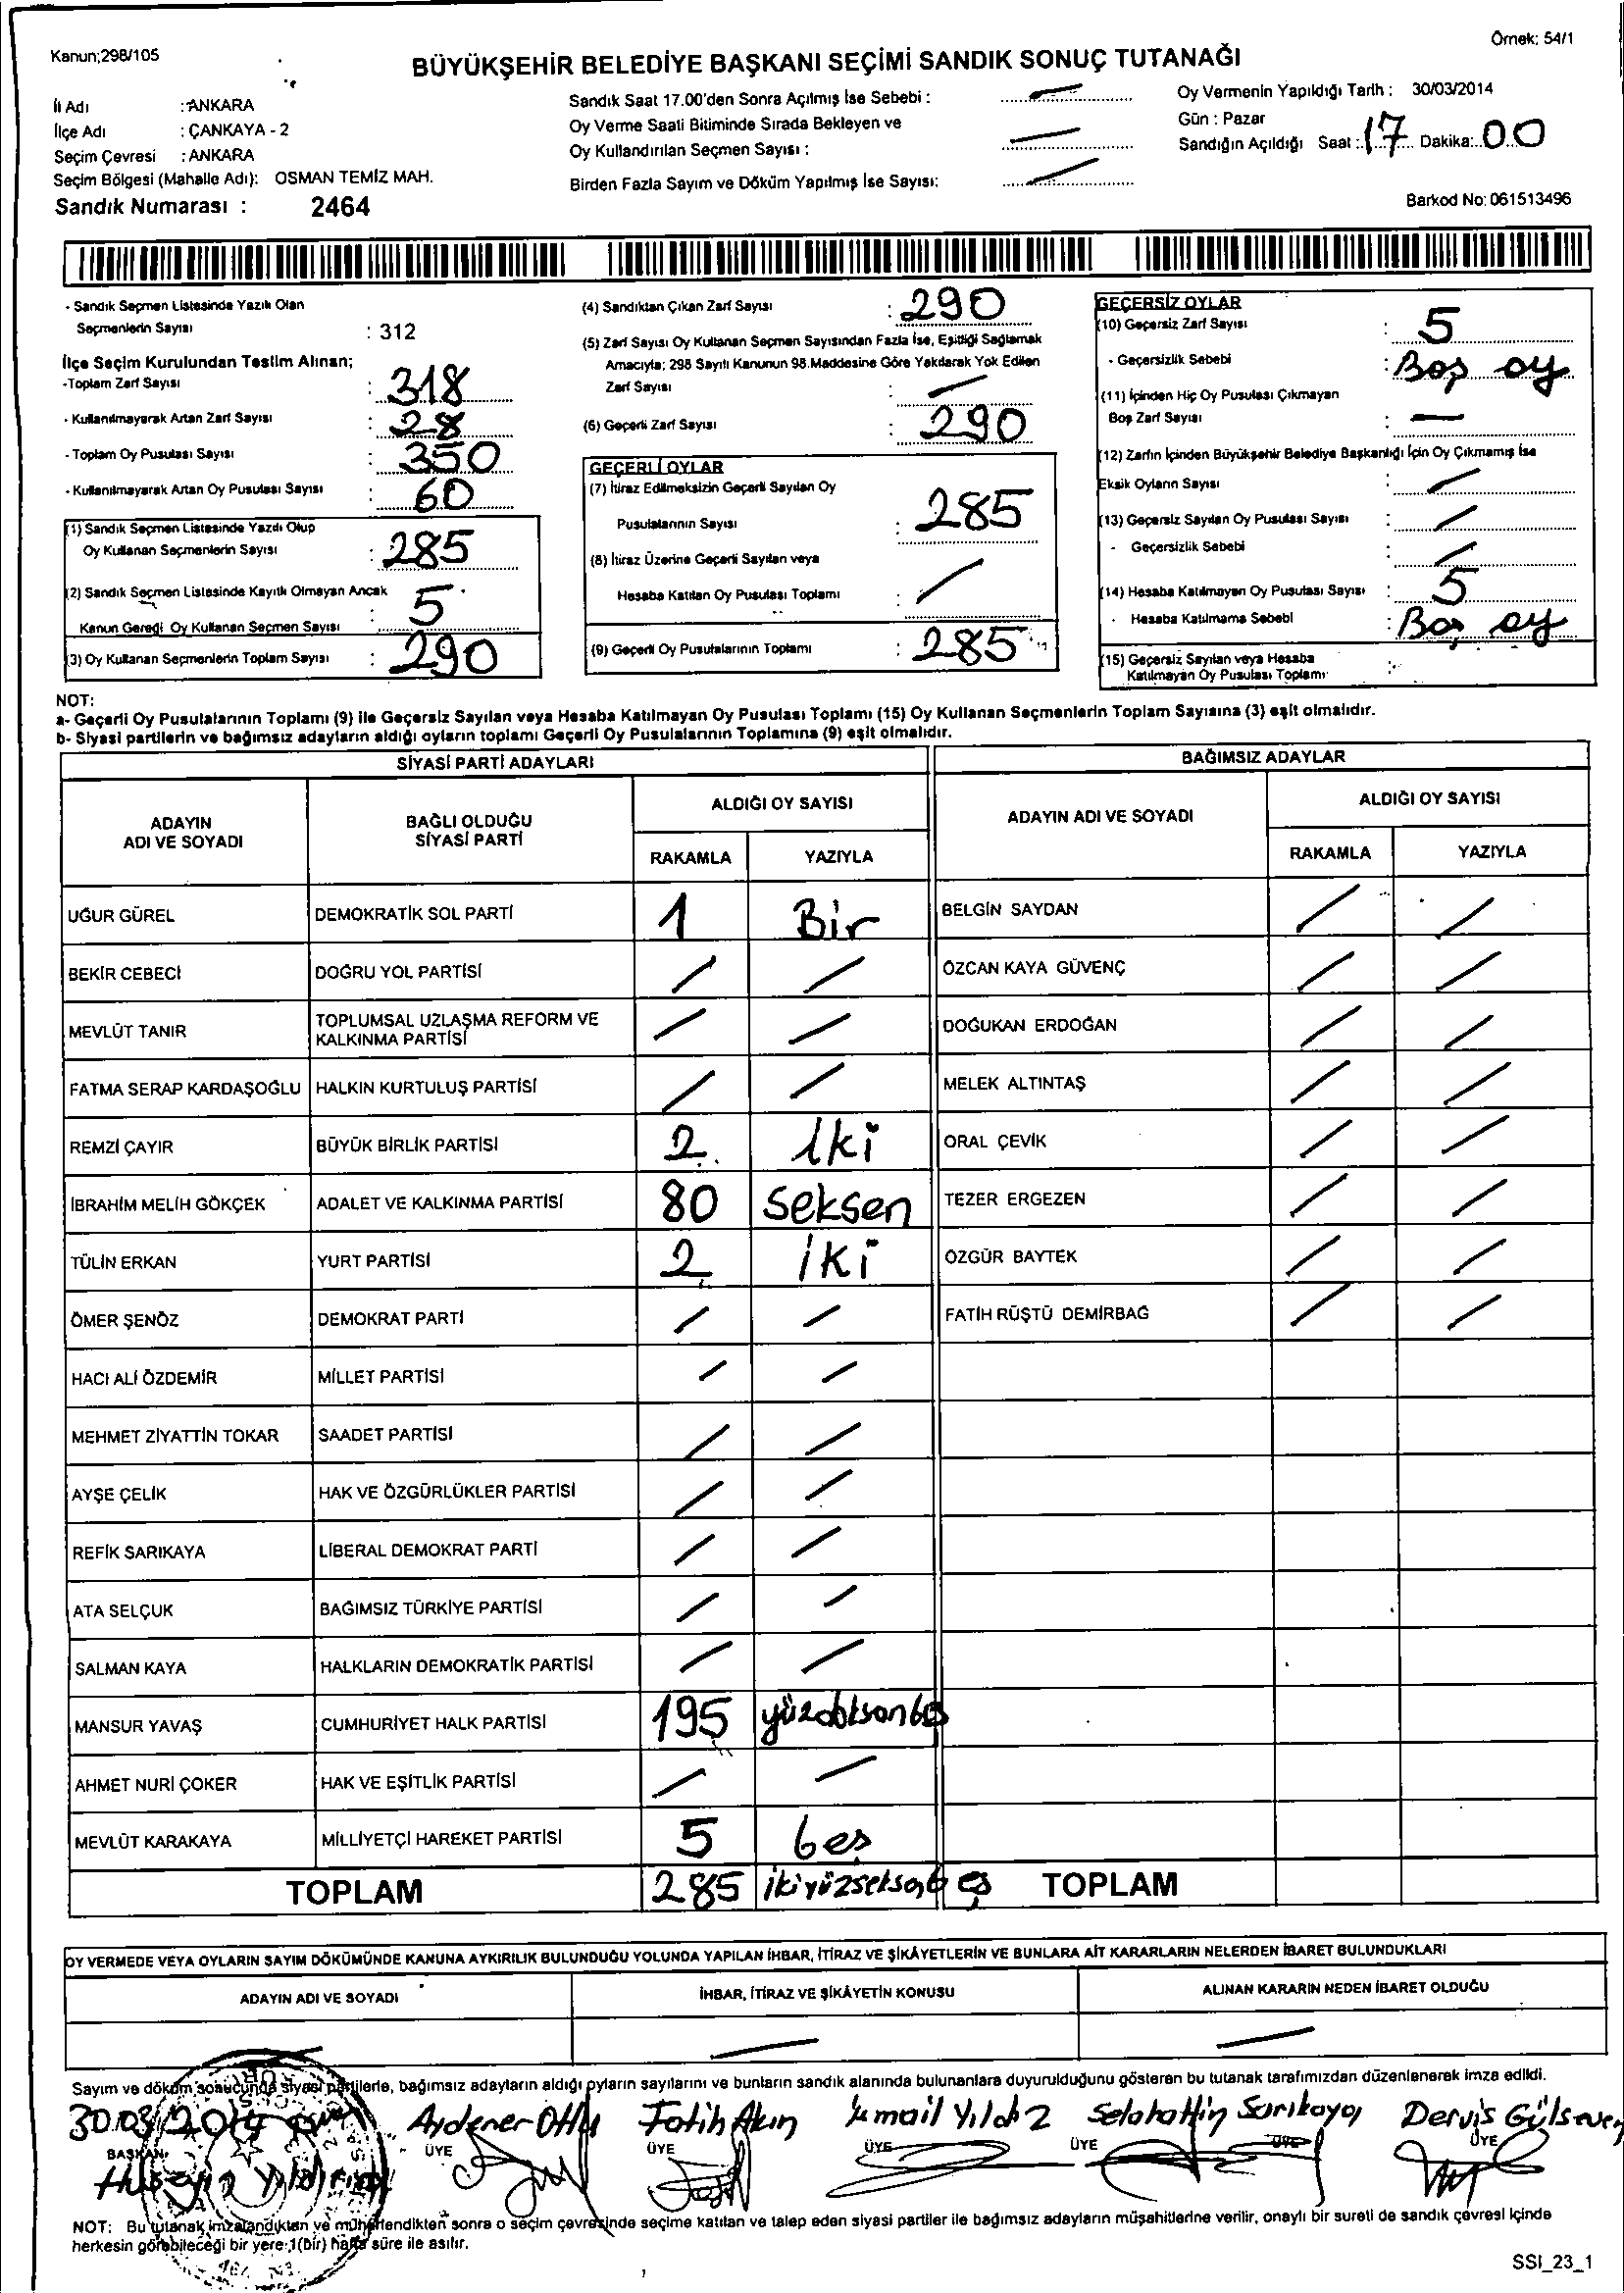 Kanun;298/105
Örnek: 54/1
BÜYÜKŞEHİR BELEDİYE BAŞKANI SEÇİMİ SANDIK SONUÇ TUTANAĞI
İl Adı : ANKARA
İlçe Adı : ÇANKAYA - 2
Seçim Çevresi : ANKARA
Seçim Bölgesi (Mahalle Adı): OSMAN TEMİZ MAH.
Sandık Numarası : 2464
Sandık Saat 17.00'den Sonra Açılmış İse Sebebi :
Oy Verme Saati Bitiminde Sırada Bekleyen ve
Oy Kullandırılan Seçmen Sayısı :
Birden Fazla Sayım ve Döküm Yapılmış İse Sayısı:
Oy Vermenin Yapıldığı Tarih : 30/03/2014
Gün : Pazar
Sandığın Açıldığı Saat : 17 Dakika: 00
Barkod No: 061513496
- Sandık Seçmen Listesinde Yazılı Olan
Seçmenlerin Sayısı : 312
İlçe Seçim Kurulundan Teslim Alınan;
-Toplam Zarf Sayısı : 318
- Kullanılmayarak Artan Zarf Sayısı : 28
- Toplam Oy Pusulası Sayısı : 350
- Kullanılmayarak Artan Oy Pusulası Sayısı : 60
(1) Sandık Seçmen Listesinde Yazılı Olup
Oy Kullanan Seçmenlerin Sayısı : 285
(2) Sandık Seçmen Listesinde Kayıtlı Olmayan Ancak
Kanun Gereği Oy Kullanan Seçmen Sayısı : 5
(3) Oy Kullanan Seçmenlerin Toplam Sayısı : 290
(4) Sandıktan Çıkan Zarf Sayısı : 290
(5) Zarf Sayısı Oy Kullanan Seçmen Sayısından Fazla İse, Eşitliği Sağlamak
Amacıyla; 298 Sayılı Kanunun 98.Maddesine Göre Yakılarak Yok Edilen
Zarf Sayısı :
(6) Geçerli Zarf Sayısı : 290
GEÇERLİ OYLAR
(7) İtiraz Edilmeksizin Geçerli Sayılan Oy
Pusulalarının Sayısı : 285
(8) İtiraz Üzerine Geçerli Sayılan veya
Hesaba Katılan Oy Pusulası Toplamı :
(9) Geçerli Oy Pusulalarının Toplamı : 285
GEÇERSİZ OYLAR
(10) Geçersiz Zarf Sayısı : 5
- Geçersizlik Sebebi : Boş oy
(11) İçinden Hiç Oy Pusulası Çıkmayan
Boş Zarf Sayısı :
(12) Zarfın İçinden Büyükşehir Belediye Başkanlığı İçin Oy Çıkmamış İse
Eksik Oyların Sayısı :
(13) Geçersiz Sayılan Oy Pusulası Sayısı :
- Geçersizlik Sebebi :
(14) Hesaba Katılmayan Oy Pusulası Sayısı : 5
- Hesaba Katılmama Sebebi : Boş oy
(15) Geçersiz Sayılan veya Hesaba
Katılmayan Oy Pusulası Toplamı :
NOT:
a- Geçerli Oy Pusulalarının Toplamı (9) ile Geçersiz Sayılan veya Hesaba Katılmayan Oy Pusulası Toplamı (15) Oy Kullanan Seçmenlerin Toplam Sayısına (3) eşit olmalıdır.
b- Siyasi partilerin ve bağımsız adayların aldığı oyların toplamı Geçerli Oy Pusulalarının Toplamına (9) eşit olmalıdır.
SİYASİ PARTİ ADAYLARI
BAĞIMSIZ ADAYLAR
ADAYIN
ADI VE SOYADI
BAĞLI OLDUĞU
SİYASİ PARTİ
ALDIĞI OY SAYISI
RAKAMLA YAZIYLA
ADAYIN ADI VE SOYADI
ALDIĞI OY SAYISI
RAKAMLA YAZIYLA
UĞUR GÜREL DEMOKRATİK SOL PARTİ 1 Bir BELGİN SAYDAN
BEKİR CEBECİ DOĞRU YOL PARTİSİ ÖZCAN KAYA GÜVENÇ
MEVLÜT TANIR TOPLUMSAL UZLAŞMA REFORM VE
KALKINMA PARTİSİ DOĞUKAN ERDOĞAN
FATMA SERAP KARDAŞOĞLU HALKIN KURTULUŞ PARTİSİ MELEK ALTINTAŞ
REMZİ ÇAYIR BÜYÜK BİRLİK PARTİSİ 2 iki ORAL ÇEVİK
İBRAHİM MELİH GÖKÇEK ADALET VE KALKINMA PARTİSİ 80 seksen TEZER ERGEZEN
TÜLİN ERKAN YURT PARTİSİ 2 iki ÖZGÜR BAYTEK
ÖMER ŞENÖZ DEMOKRAT PARTİ FATİH RÜŞTÜ DEMİRBAĞ
HACI ALİ ÖZDEMİR MİLLET PARTİSİ
MEHMET ZİYATTİN TOKAR SAADET PARTİSİ
AYŞE ÇELİK HAK VE ÖZGÜRLÜKLER PARTİSİ
REFİK SARIKAYA LİBERAL DEMOKRAT PARTİ
ATA SELÇUK BAĞIMSIZ TÜRKİYE PARTİSİ
SALMAN KAYA HALKLARIN DEMOKRATİK PARTİSİ
MANSUR YAVAŞ CUMHURİYET HALK PARTİSİ 195 yüzdoksanbeş
AHMET NURİ ÇOKER HAK VE EŞİTLİK PARTİSİ
MEVLÜT KARAKAYA MİLLİYETÇİ HAREKET PARTİSİ 5 beş
TOPLAM 285 ikiyüzseksenbeş TOPLAM
OY VERMEDE VEYA OYLARIN SAYIM DÖKÜMÜNDE KANUNA AYKIRILIK BULUNDUĞU YOLUNDA YAPILAN İHBAR, İTİRAZ VE ŞİKÂYETLERİN VE BUNLARA AİT KARARLARIN NELERDEN İBARET BULUNDUKLARI
ADAYIN ADI VE SOYADI İHBAR, İTİRAZ VE ŞİKÂYETİN KONUSU ALINAN KARARIN NEDEN İBARET OLDUĞU
Sayım ve döküm sonucunda siyasi partilerle, bağımsız adayların aldığı oyların sayılarını ve bunların sandık alanında bulunanlara duyurulduğunu gösteren bu tutanak tarafımızdan düzenlenerek imza edildi.
30.03.2014 Aydener Fatih Akın İsmail Yıldız Selahattin Sarıkaya Derviş Gülseven
BAŞKAN ÜYE ÜYE ÜYE ÜYE ÜYE ÜYE
Hüseyin Yıldırım
NOT: Bu tutanak imzalandıktan ve mühürlendikten sonra o seçim çevresinde seçime katılan ve talep eden siyasi partiler ile bağımsız adayların müşahitlerine verilir, onaylı bir sureti de sandık çevresi içinde
herkesin görebileceği bir yere 1(bir) hafta süre ile asılır.
SSI_23_1